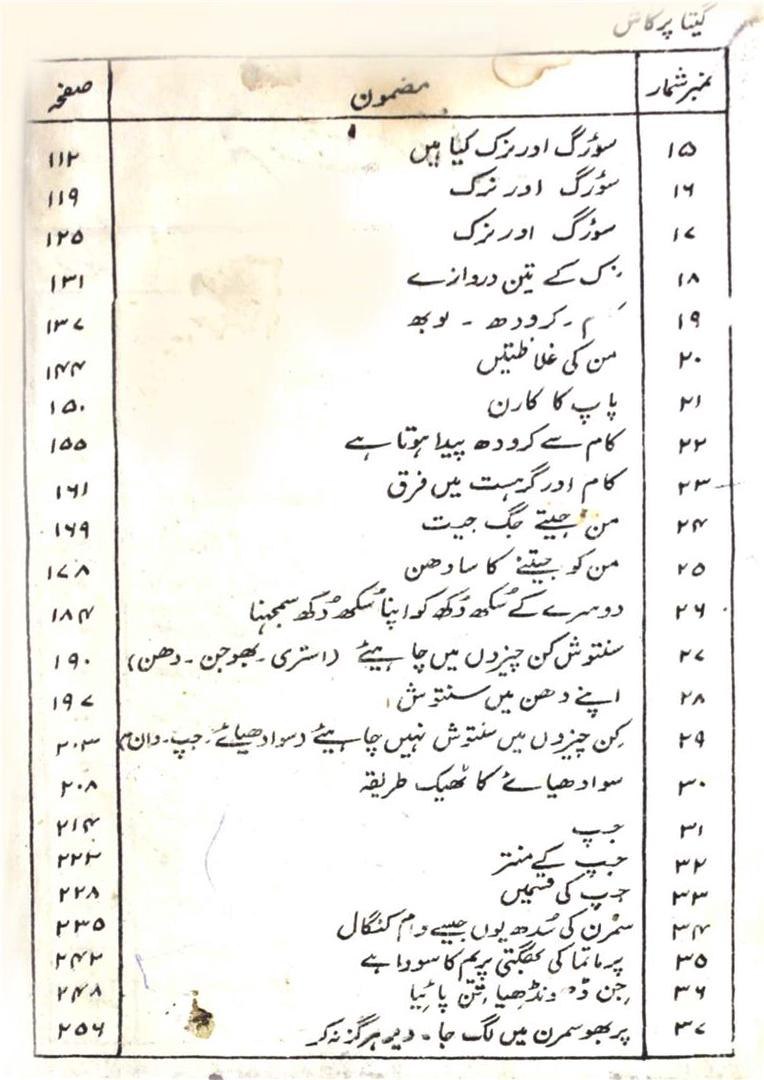 گیتا پرکاش
نمبر شمار مضمون صفحہ
۱۵ سؤرگ اور نرک کیا ہیں ۱۱۲
۱۶ سؤرگ اور نرک ۱۱۹
۱۷ سؤرگ اور نرک ۱۲۵
۱۸ کے تین دروازے ۱۳۱
۱۹ ۔ کرودھ ۔ لوبھ ۱۳۷
۲۰ من کی غلاظتیں ۱۴۴
۲۱ پاپ کا کارن ۱۵۰
۲۲ کام سے کرودھ پیدا ہوتا ہے ۱۵۵
۲۳ کام اور گرہست میں فرق ۱۶۱
۲۴ من جیتے جگ جیت ۱۶۹
۲۵ من کو جیتنے کا سادھن ۱۷۸
۲۶ دوسرے کے سُکھ دُکھ کو اپنا سُکھ دُکھ سمجھنا ۱۸۴
۲۷ سنتوش کن چیزوں میں چاہیئے (استری ۔ بھوجن ۔ دھن) ۱۹۰
۲۸ اپنے دھن میں سنتوش ۱۹۷
۲۹ کِن چیزوں میں سنتوش نہیں چاہیئے (سوادھیائے ۔ جپ ۔ دان) ۲۰۳
۳۰ سوادھیائے کا ٹھیک طریقہ ۲۰۸
۳۱ جپ ۲۱۴
۳۲ جپ کے منتر ۲۲۲
۳۳ جپ کی قسمیں ۲۲۸
۳۴ سمرن کی سُدھ یوں جیسے دام کنگال ۲۳۵
۳۵ پرماتما کی بھگتی پریم کا سودا ہے ۲۴۲
۳۶ جِن ڈھونڈھیا تِن پائیا ۲۴۸
۳۷ پربھو سمرن میں لگ جا ۔ دیر ہرگز نہ کر ۲۵۶